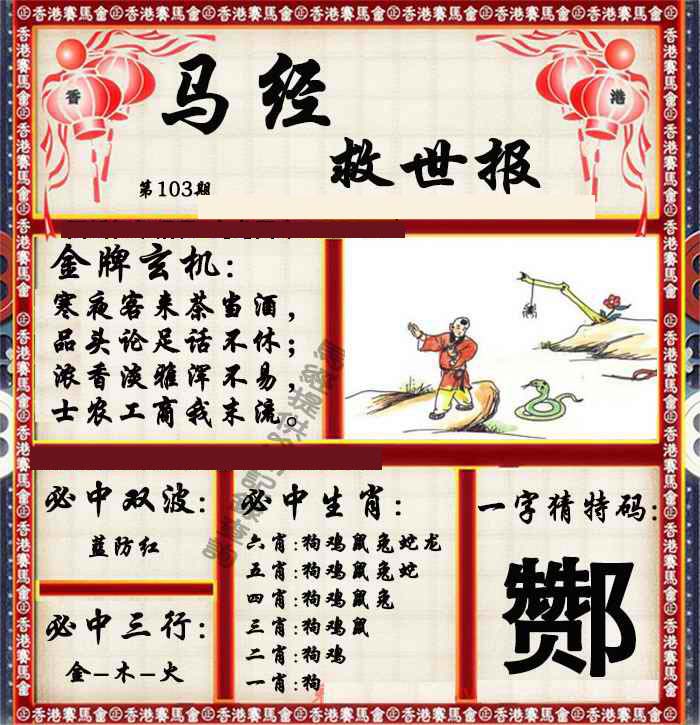 香港賽馬會
香
港
马经
救世报
第103期
金牌玄机:
寒夜客来茶当酒,
品头论足话不休;
浓香淡雅浑不易,
士农工商我末流。
必中双波:
蓝防红
必中三行:
金-木-火
必中生肖:
六肖:狗鸡鼠兔蛇龙
五肖:狗鸡鼠兔蛇
四肖:狗鸡鼠兔
三肖:狗鸡鼠
二肖:狗鸡
一肖:狗
一字猜特码:
酂